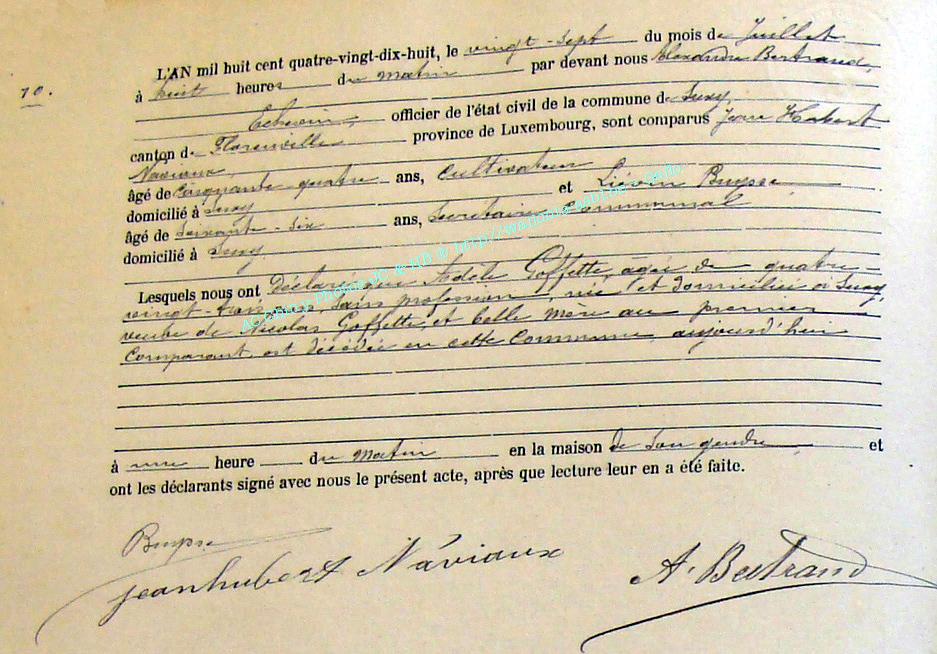 L'AN mil huit cent quatre-vingt-dix-huit, le vingt-sept du mois de Juillet
10.
à huit heures du matin par devant nous Alexandre Bertrand,
Echevin, officier de l'état civil de la commune de Suxy,
canton de Florenville province de Luxembourg, sont comparus Jean Hubert
Naviaux,
âgé de cinquante-quatre ans, Cultivateur
domicilié à Suxy et Liévin Buysse
âgé de soixante-six ans, Secrétaire communal
domicilié à Suxy,
Lesquels nous ont Déclaré que Adèle Goffette, agée de quatre-
vingt-trois ans, sans profession, née et domiciliée à Suxy,
veuve de Nicolas Goffette, et belle mère au premier
comparant, est décédée en cette commune, aujourd'hui
à une heure du matin en la maison de son gendre et
ont les déclarants signé avec nous le présent acte, après que lecture leur en a été faite.
Buysse
jeanhubert Naviaux A. Bertrand